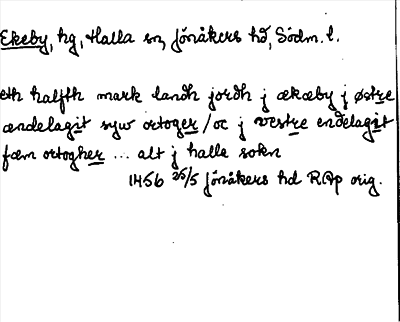 Ekeby, hg, Halla sn, Jönåkers hd, Södm. l.
eth halfth mark landh jordh j ækæby j østre
ændelagit syw ortoger / oc j vestre endelagit
fæm ortogher ... alt j halle sokn
1456 25/5 Jönåkers hd RAp orig.